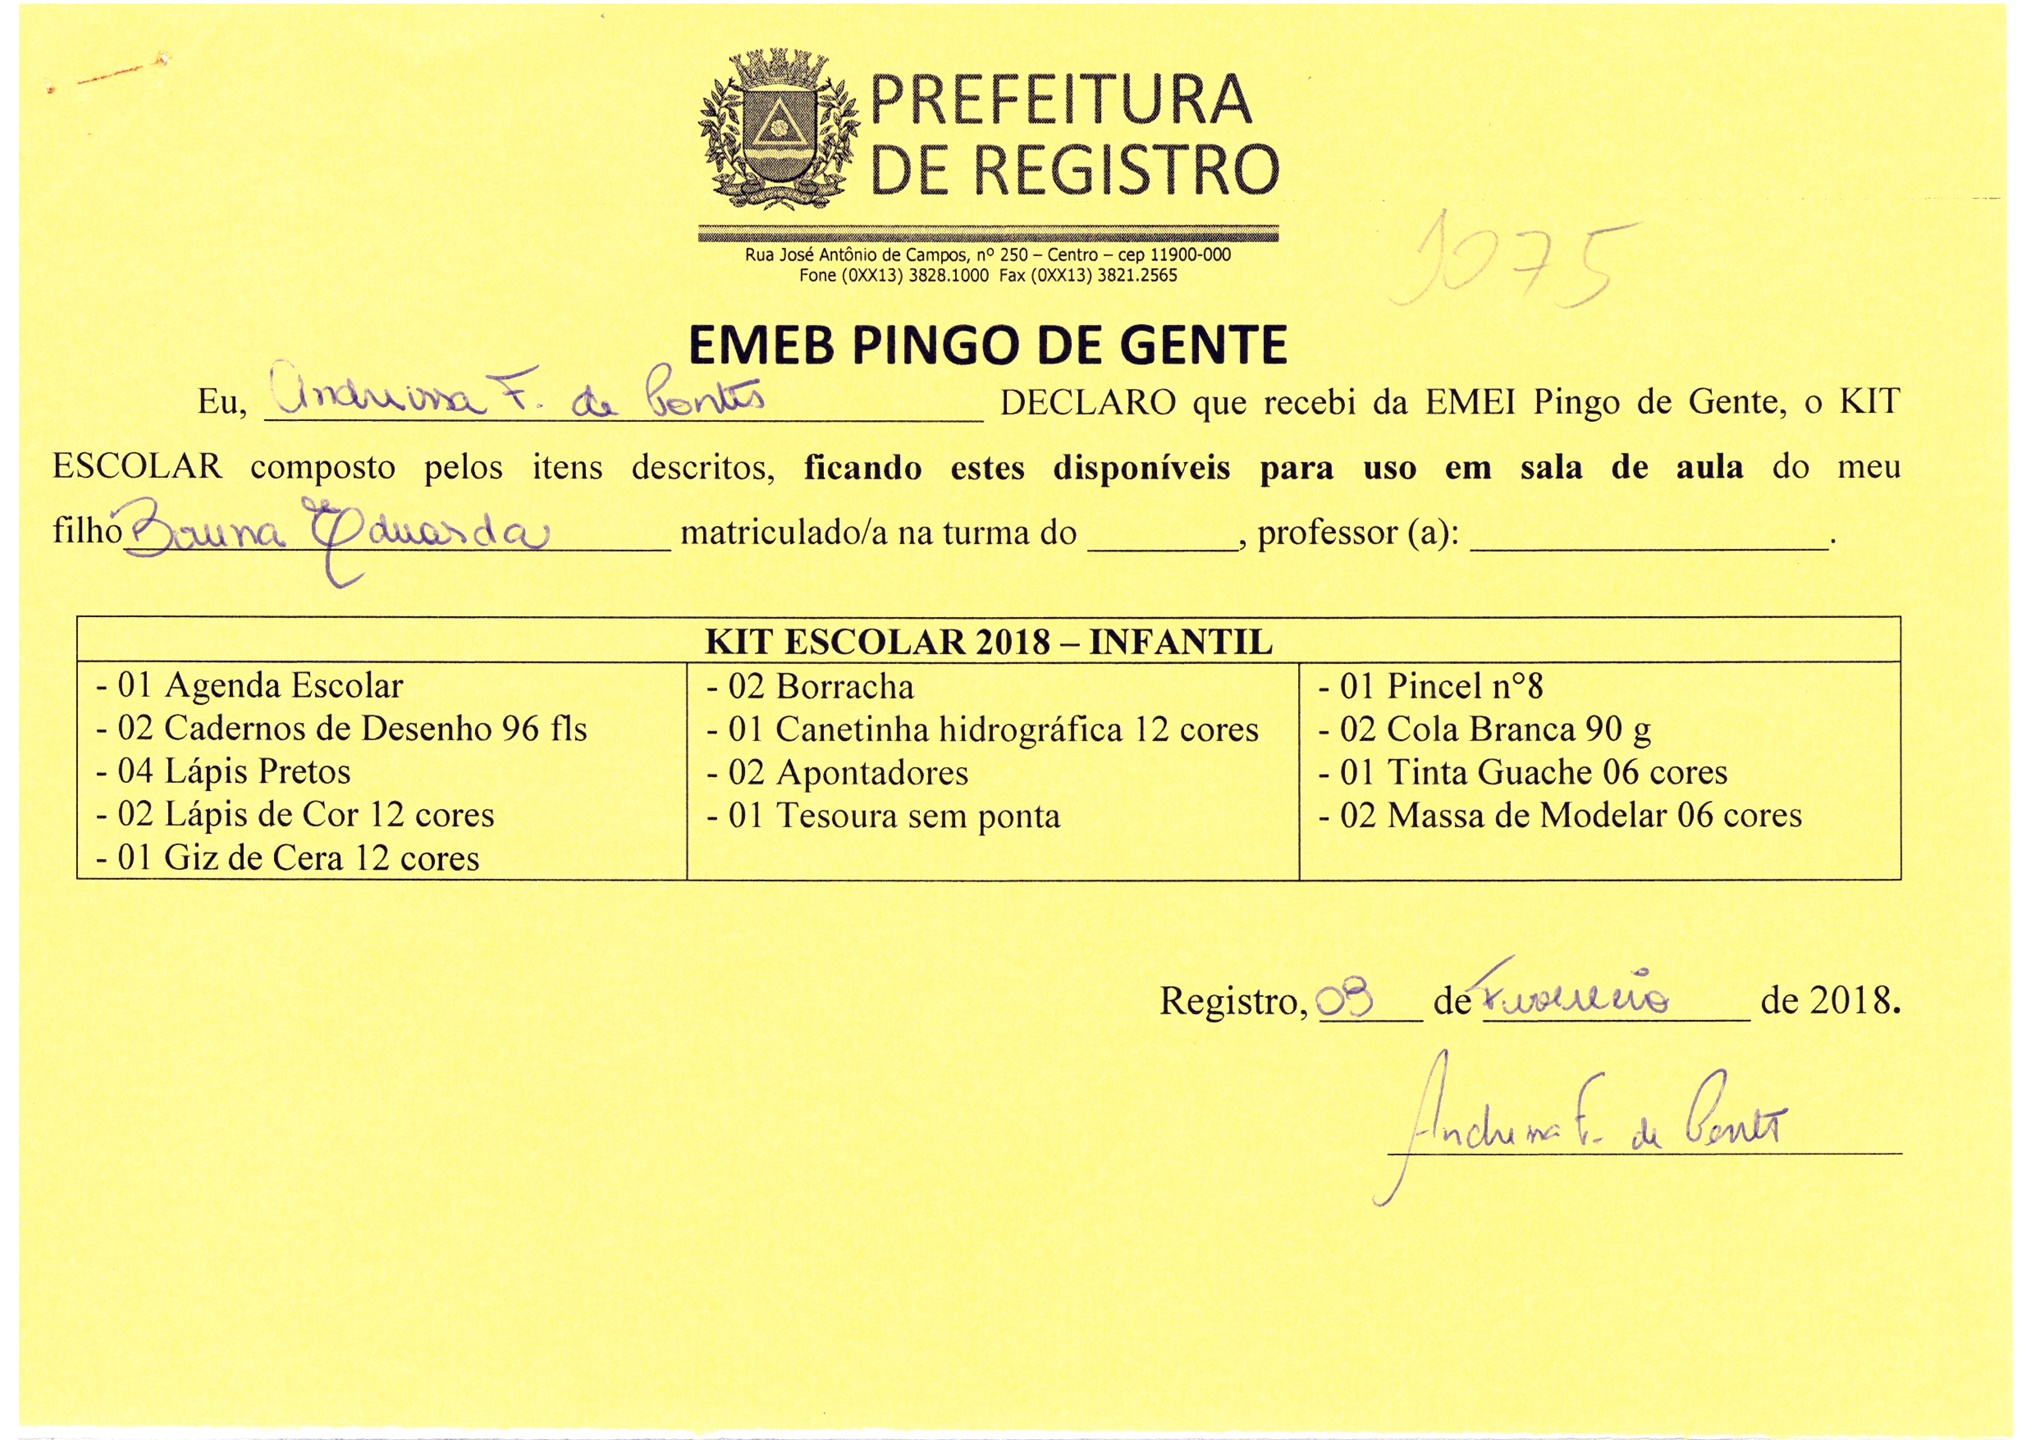 PREFEITURA
DE REGISTRO
Rua José Antônio de Campos, nº 250 – Centro – cep 11900-000
Fone (0XX13) 3828.1000 Fax (0XX13) 3821.2565
1075
EMEB PINGO DE GENTE
Eu, Andreissa F. de Pontes DECLARO que recebi da EMEI Pingo de Gente, o KIT
ESCOLAR composto pelos itens descritos, ficando estes disponíveis para uso em sala de aula do meu
filho Bruna Eduarda matriculado/a na turma do ________, professor (a): ____________________.
KIT ESCOLAR 2018 – INFANTIL
- 01 Agenda Escolar
- 02 Cadernos de Desenho 96 fls
- 04 Lápis Pretos
- 02 Lápis de Cor 12 cores
- 01 Giz de Cera 12 cores
- 02 Borracha
- 01 Canetinha hidrográfica 12 cores
- 02 Apontadores
- 01 Tesoura sem ponta
- 01 Pincel n°8
- 02 Cola Branca 90 g
- 01 Tinta Guache 06 cores
- 02 Massa de Modelar 06 cores
Registro, 09 de Fevereiro de 2018.
F. de Pontes